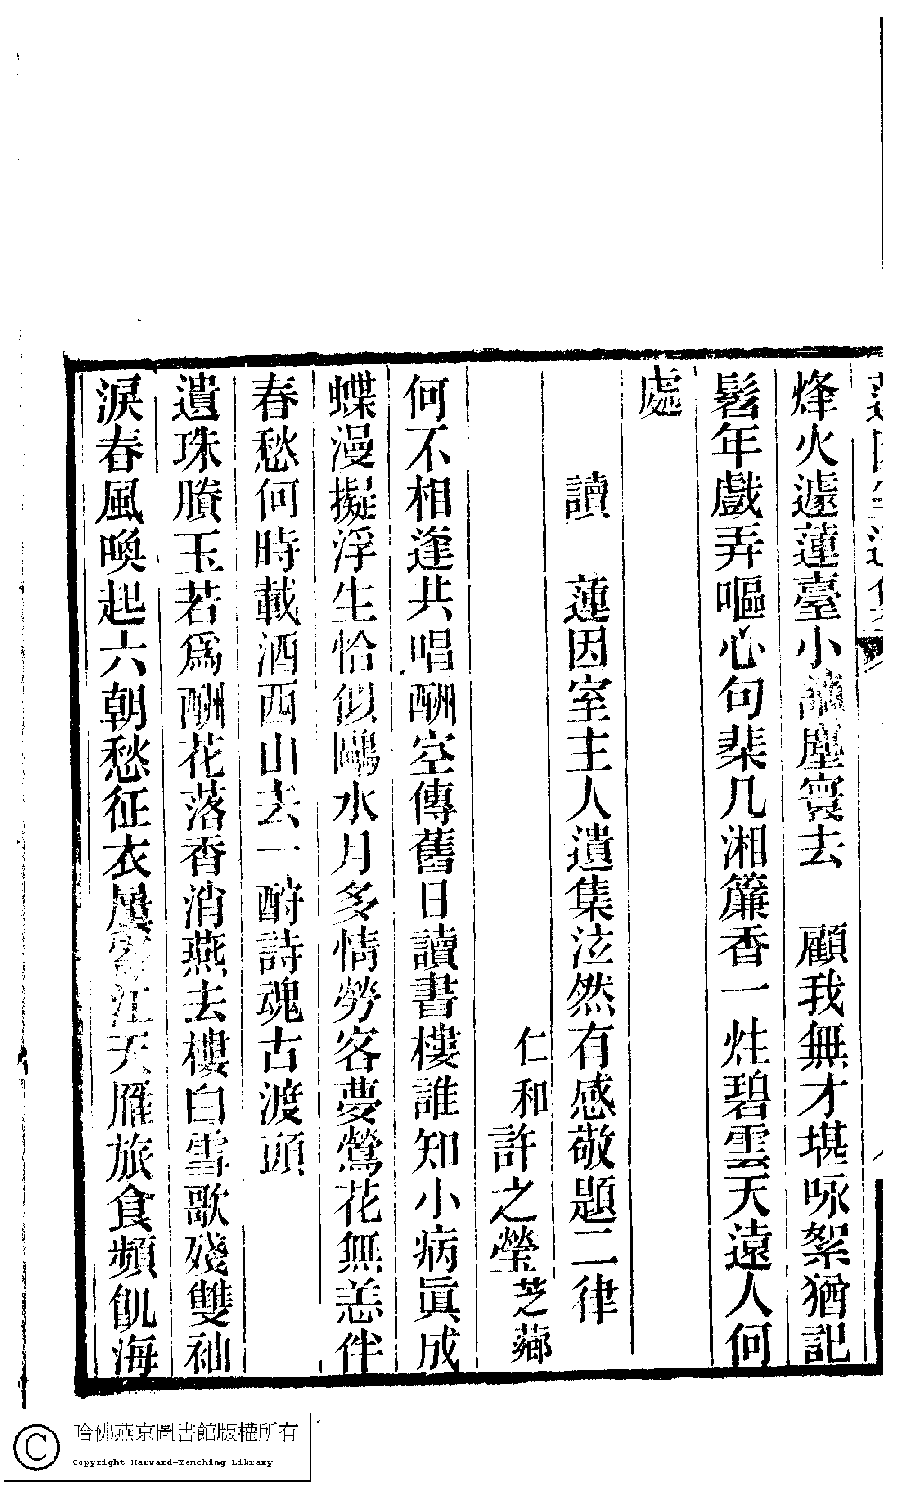 蓮因室遺集
烽火遽蓮臺小謫塵寰去　顧我無才堪咏絮猶記
髫年戲弄嘔心句棐几湘簾香一炷碧雲天遠人何
處
讀　蓮因室主人遺集泣然有感敬題二律
仁和許之瑩芝薌
何不相逢共唱酬空傳舊日讀書樓誰知小病眞成
蝶漫擬浮生恰似鷗水月多情勞客夢鶯花無恙伴
春愁何時載酒西山去一酹詩魂古渡頭
遺珠賸玉若爲酬花落香消燕去樓白雪歌殘雙袖
淚春風喚起六朝愁征衣屢江天雁旅食頻飢海
哈佛燕京圖書館版權所有
Copyright Harvard-Yenching Library